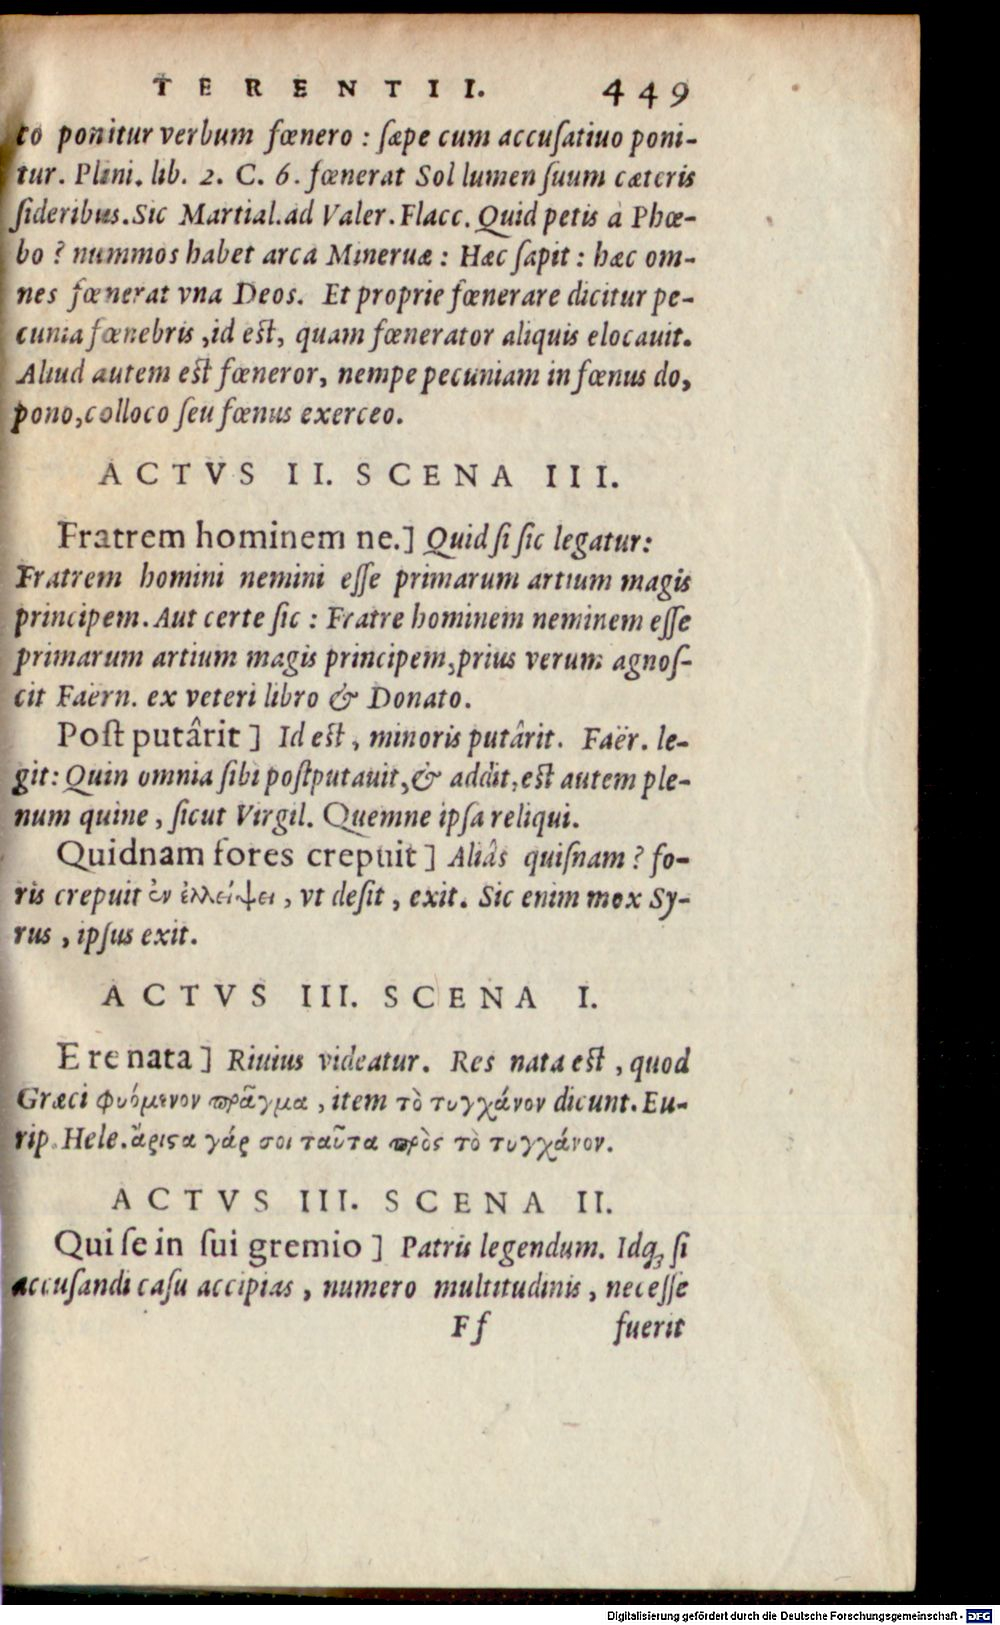 TERENTII. 449
to ponitur verbum fœnero : ſæpe cum accuſatiuo poni-
tur. Plini. lib. 2. C. 6. fœnerat Sol lumen ſuum cæteris
ſideribus. Sic Martial. ad Valer. Flacc. Quid petis à Phœ-
bo ? nummos habet arca Mineruæ : Hæc ſapit : hæc om-
nes fœnerat vna Deos. Et proprie fœnerare dicitur pe-
cunia fœnebris , id eſt, quam fœnerator aliquis elocauit.
Aliud autem eſt fœneror, nempe pecuniam in fœnus do,
pono, colloco ſeu fœnus exerceo.
ACTVS II. SCENA III.
Fratrem hominem ne.] Quid ſi ſic legatur:
Fratrem homini nemini eſſe primarum artium magis
principem. Aut certe ſic : Fratre hominem neminem eſſe
primarum artium magis principem, prius verum agnoſ-
cit Faërn. ex veteri libro & Donato.
Poſt putârit ] Id eſt , minoris putârit. Faër. le-
git: Quin omnia ſibi poſtputauit, & addit, eſt autem ple-
num quine , ſicut Virgil. Quemne ipſa reliqui.
Quidnam fores crepuit ] Aliâs quiſnam ? fo-
ris crepuit ἐν ἐλλείψει , vt deſit , exit. Sic enim mox Sy-
rus , ipſus exit.
ACTVS III. SCENA I.
E re nata ] Riuius videatur. Res nata eſt , quod
Græci φυόμενον πρᾶγμα , item τὸ τυγχάνον dicunt. Eu-
rip. Hele. ἄριϛα γάρ σοι ταῦτα πρὸς τὸ τυγχάνον.
ACTVS III. SCENA II.
Qui ſe in ſui gremio ] Patris legendum. Idq; ſi
accuſandi caſu accipias , numero multitudinis , neceſſe
Ff fuerit
Digitalisierung gefördert durch die Deutsche Forschungsgemeinschaft - DFG